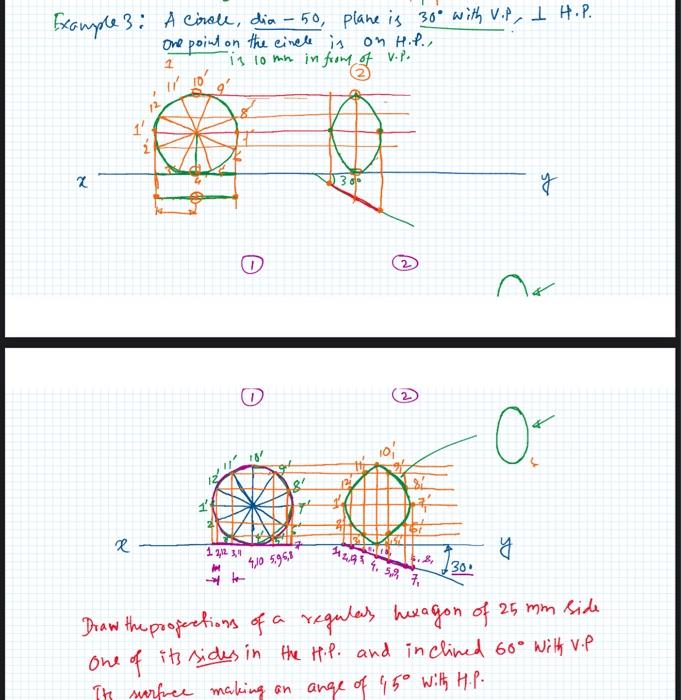 Example 3: A circle, dia - 50, plane is 30° with V.P, ⊥ H.P.
one point on the circle is on H.P.,
is 10 mm in front of V.P.
1
2
11' 10' 9'
12'
8'
1'
2'
x
30°
y
1 2
1 2
10' 10₁'
11' 9' 11₁' 9₁'
12' 8' 12₁' 8₁'
1' 7' 1₁' 7₁'
2' 6₁'
x y
1 2,12 3,11 4,10 5,9 6,8 7
30°
7₁
Draw the projections of a regular hexagon of 25 mm side
one of its sides in the H.P. and inclined 60° with V.P
Its surface making an ange of 45° with H.P.